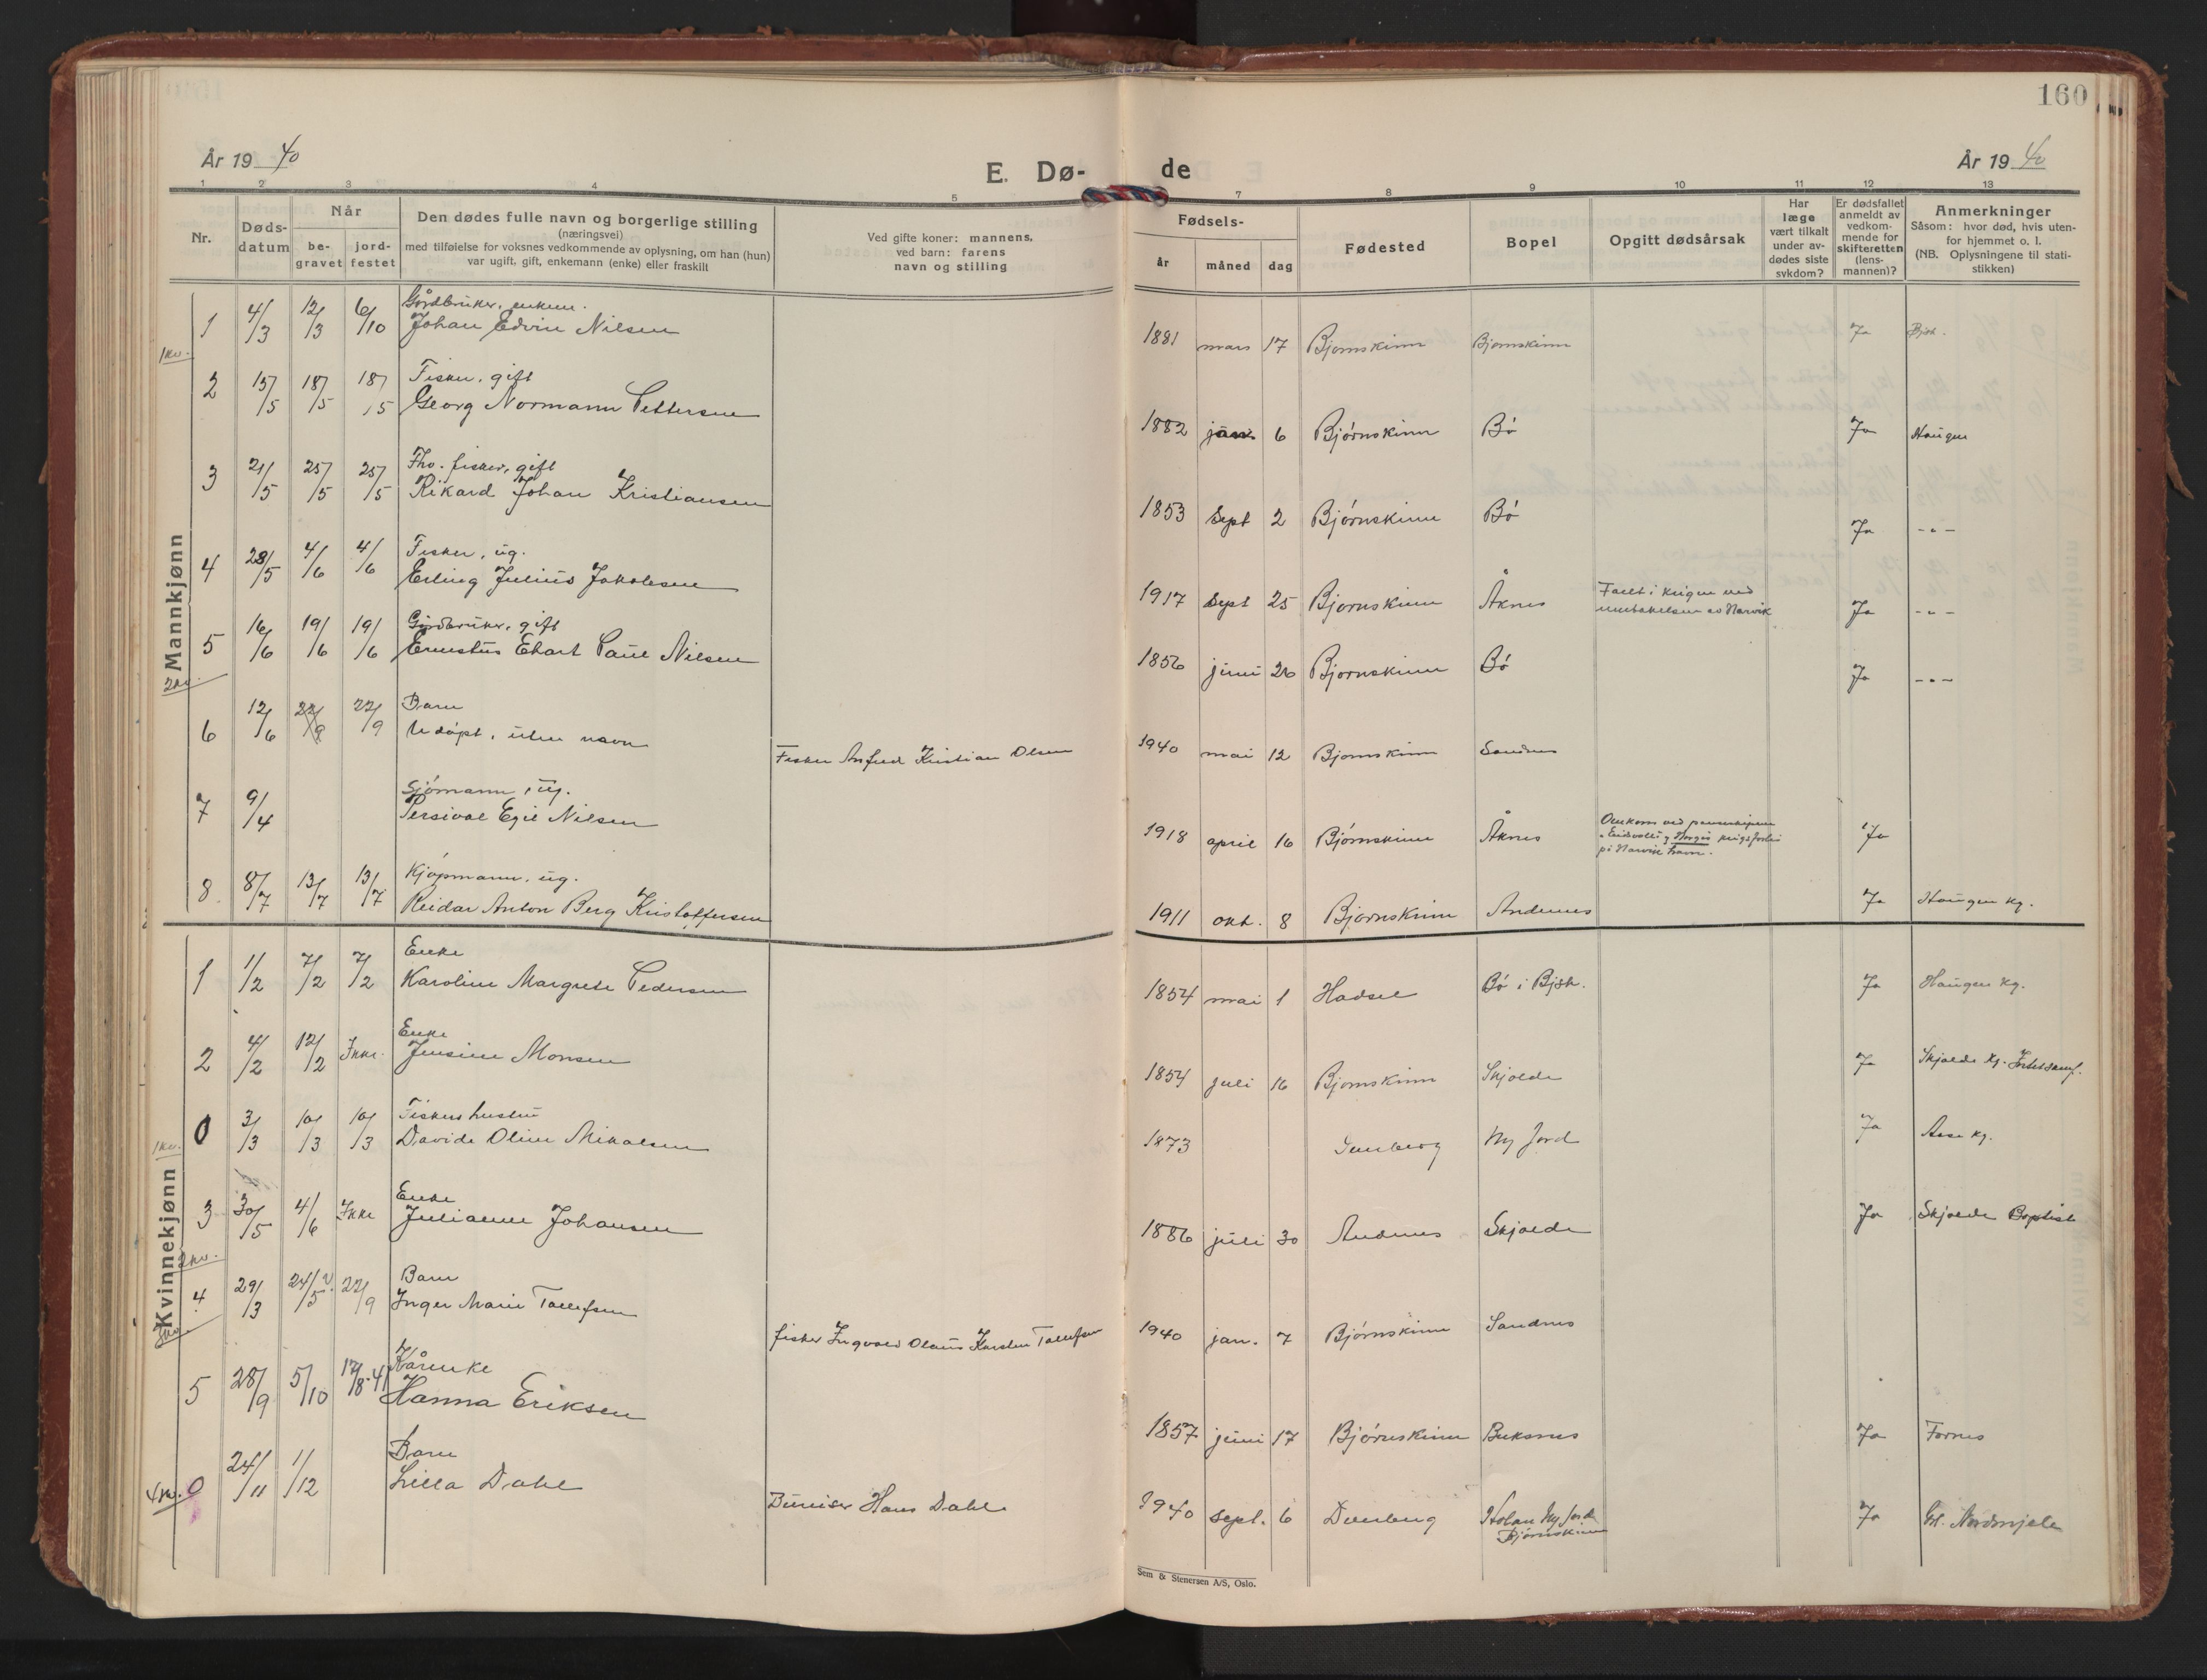 160
År 19 40
E. Dø-
de
År 19 40
1 2 3 4 5 7 8 9 10 11 12 13
Nr.
Døds-
datum
Når
be-
gravet
jord-
festet
Den dødes fulle navn og borgerlige stilling
(næringsvei)
med tilføielse for voksnes vedkommende av oplysning, om han (hun)
var ugift, gift, enkemann (enke) eller fraskilt
Ved gifte koner: mannens,
ved barn: farens
navn og stilling
Fødsels-
år
måned
dag
Fødested
Bopel
Opgitt dødsårsak
Har
læge
vært tilkalt
under av-
dødes siste
sykdom?
Er dødsfallet
anmeldt av
vedkom-
mende for
skifteretten
(lens-
mannen)?
Anmerkninger
Såsom: hvor død, hvis uten-
for hjemmet o. l.
(NB. Oplysningene til stati-
stikken)
Mannkjønn
1kv.
Gårdbruker, enkem.
1 4/3 12/3 6/10 Johan Edvin Nilsen 1881 mars 17 Bjørnskinn Bjørnskinn Ja Bjsk.
Fisker, gift
2 15/5 18/5 18/5 Georg Normann Pettersen 1882 jan. 6 Bjørnskinn Bø Ja Haugen
Fhv. fisker, gift
3 21/5 25/5 25/5 Rikard Johan Kristiansen 1853 Sept 2 Bjørnskinn Bø Ja -"-
Fisker, ug.
4 28/5 4/6 4/6 Erling Julius Jakobsen 1917 Sept 25 Bjørnskinn Åknes Falt i krigen ved
inntakelsen av Narvik Ja -"-
Gårdbruker, gift
5 16/6 19/6 19/6 Ernstus Ehart Paul Nilsen 1856 juni 26 Bjørnskinn Bø Ja -"-
2kv.
Barn
6 12/6 22/9 22/9 Udøpt, uten navn Fisker Anfred Kristian Olsen 1940 mai 12 Bjørnskinn Sandnes
Sjømann, ug.
7 9/4 Persival Egil Nilsen 1918 april 16 Bjørnskinn Åknes Omkom ved panserskipene
"Eidsvold" og Norges krigsforlis
på Narvik havn. Ja
Kjøpmann, ug.
8 8/7 13/7 13/7 Reidar Anton Berg Kristoffersen 1911 okt. 8 Bjørnskinn Andenes Ja Haugen kg.
Kvinnekjønn
Enke
1 1/2 7/2 7/2 Karoline Margrete Pedersen 1854 mai 1 Hadsel Bø i Bjsk. Ja Haugen kg.
Enke
2 4/2 12/2 Ikke. Jensine Monsen 1854 juli 16 Bjørnskinn Skjolde Ja Skjolde kg.
1kv.
Fiskers hustru
0 3/3 10/3 10/3 Davida Oline Mikalsen 1873 Ny Jord Ja Åse kg.
Enke
3 30/5 4/6 Ikke Julianne Johansen 1886 juli 30 Andenes Skjolde Ja Skjolde Baptist
2kv.
Barn
4 29/3 24/5 22/9 Inger Marie Tollefsen fisker Ingvald Olaus Karsten Tollefsen 1940 jan. 7 Bjørnskinn Sandnes
3kv.
Kårenke
5 28/9 5/10 17/8-41 Hanna Eriksen 1857 juni 17 Bjørnskinn Buksnes Ja Fornes
Barn
4kv. 0 24/11 1/12 Lilla Dahl Bureiser Hans Dahl 1940 sept. 6 Dverberg Holan Ny Jord
Bjørnskinn Ja Gl. Nordmjele
Sem & Stenersen A/S, Oslo.